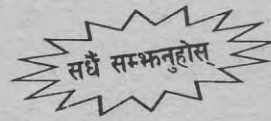 सधैं सम्झनुहोस्